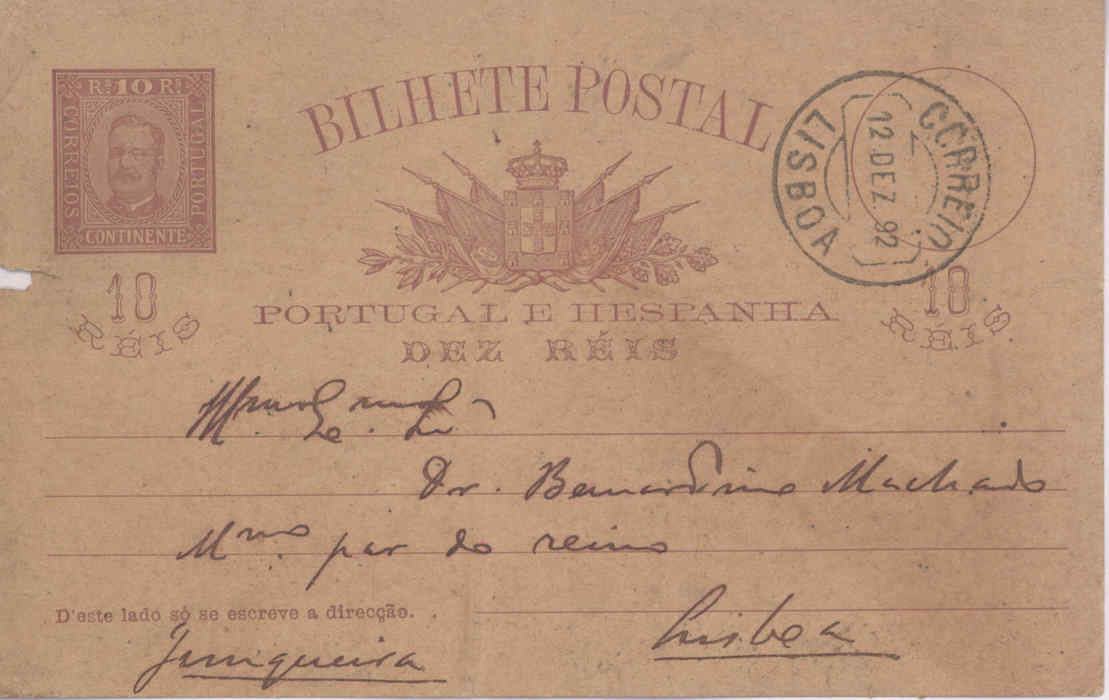 Rs 10 Rs
CORREIOS
PORTUGAL
CONTINENTE
BILHETE POSTAL
CORREIO
12 DEZ 92
LISBOA
10
RÉIS
10
RÉIS
PORTUGAL E HESPANHA
DEZ RÉIS
Dr. Bernardino Machado
Mmo. par do reino
D'este lado só se escreve a direcção.
Lisboa
Junqueira